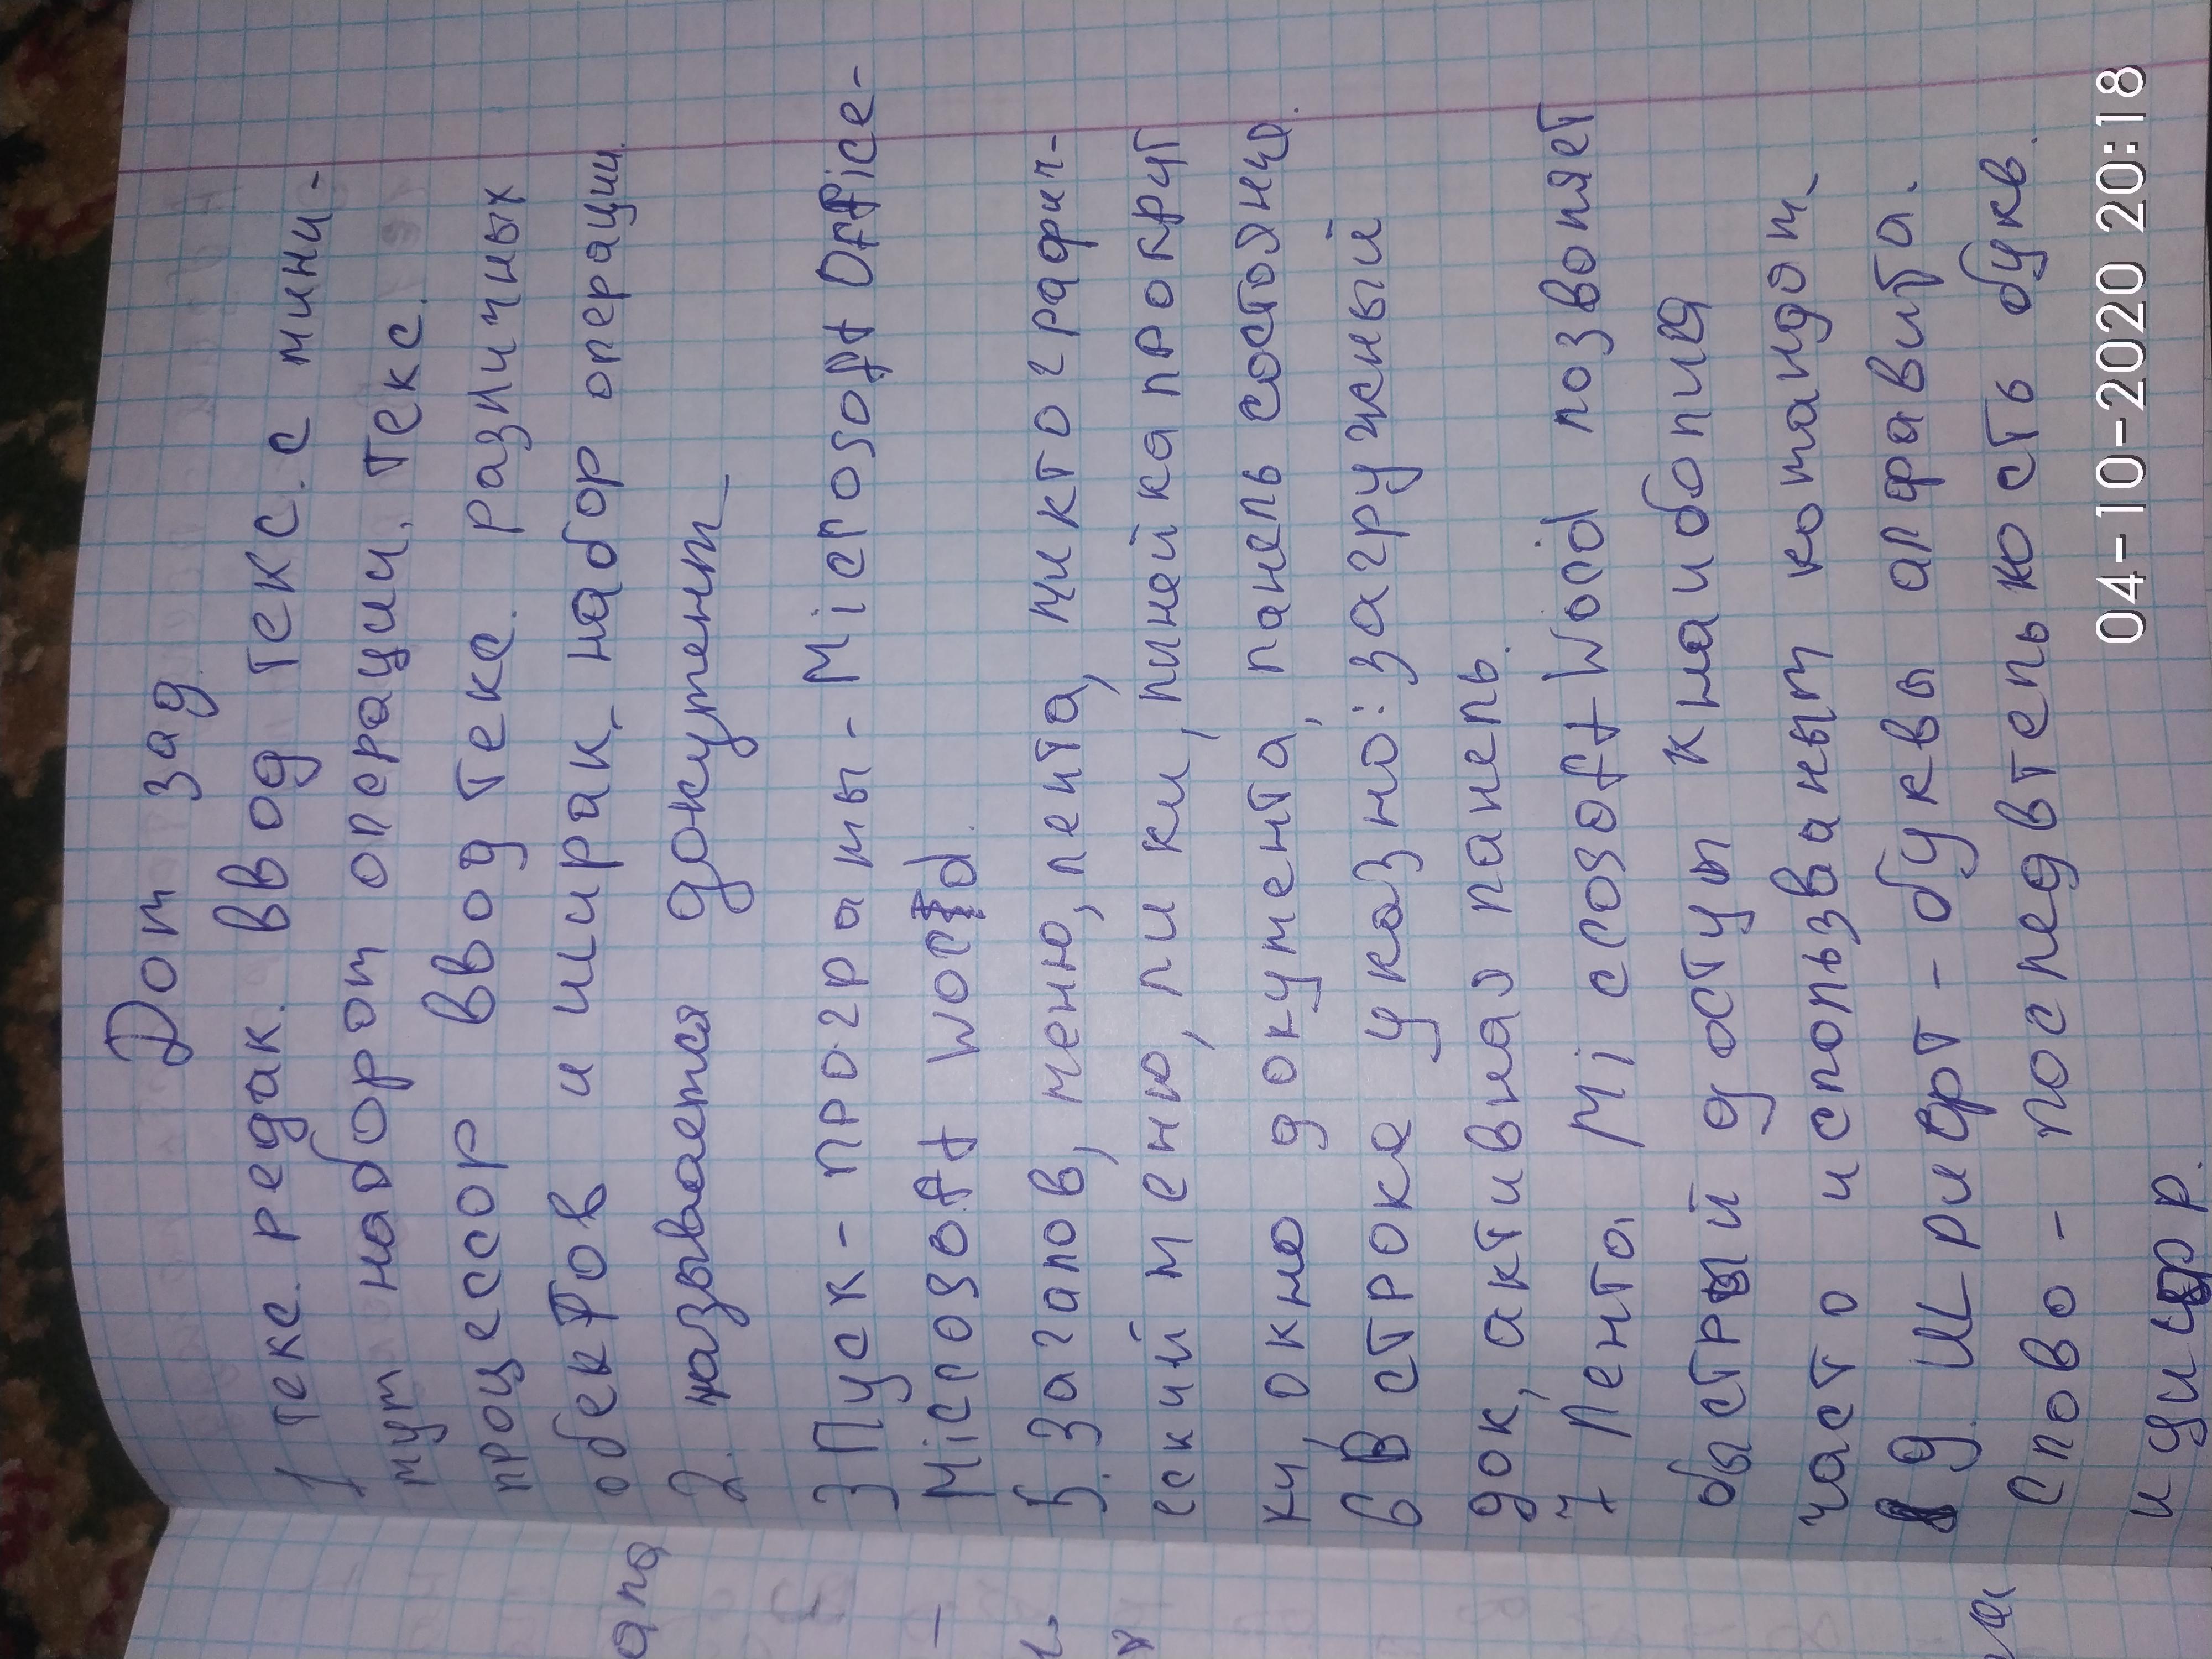 Дом зад.
1 Текс. редак. ввод текс. с мини-
мум наборот операции. Текс.
процессор ввод текс. различных
обектов и ширак. набор операции.
2. называется документ
3 Пуск - програмы - Microsoft Office -
Microsoft Word.
5. Загалов, меню, лента, миктографич-
еский меню, лики, линейка прокрут
ки, окно документа, панель состояню.
6 В строке указно: загружсный
док, активная панель.
7 Лента Miccosoft Word позволяет
быстрый доступ к наиболия
часто использваным командом
9. Шриφрт - буквы алфавита.
слово - последвтелькость букв.
и цифр.
апа
04-10-2020 20:18